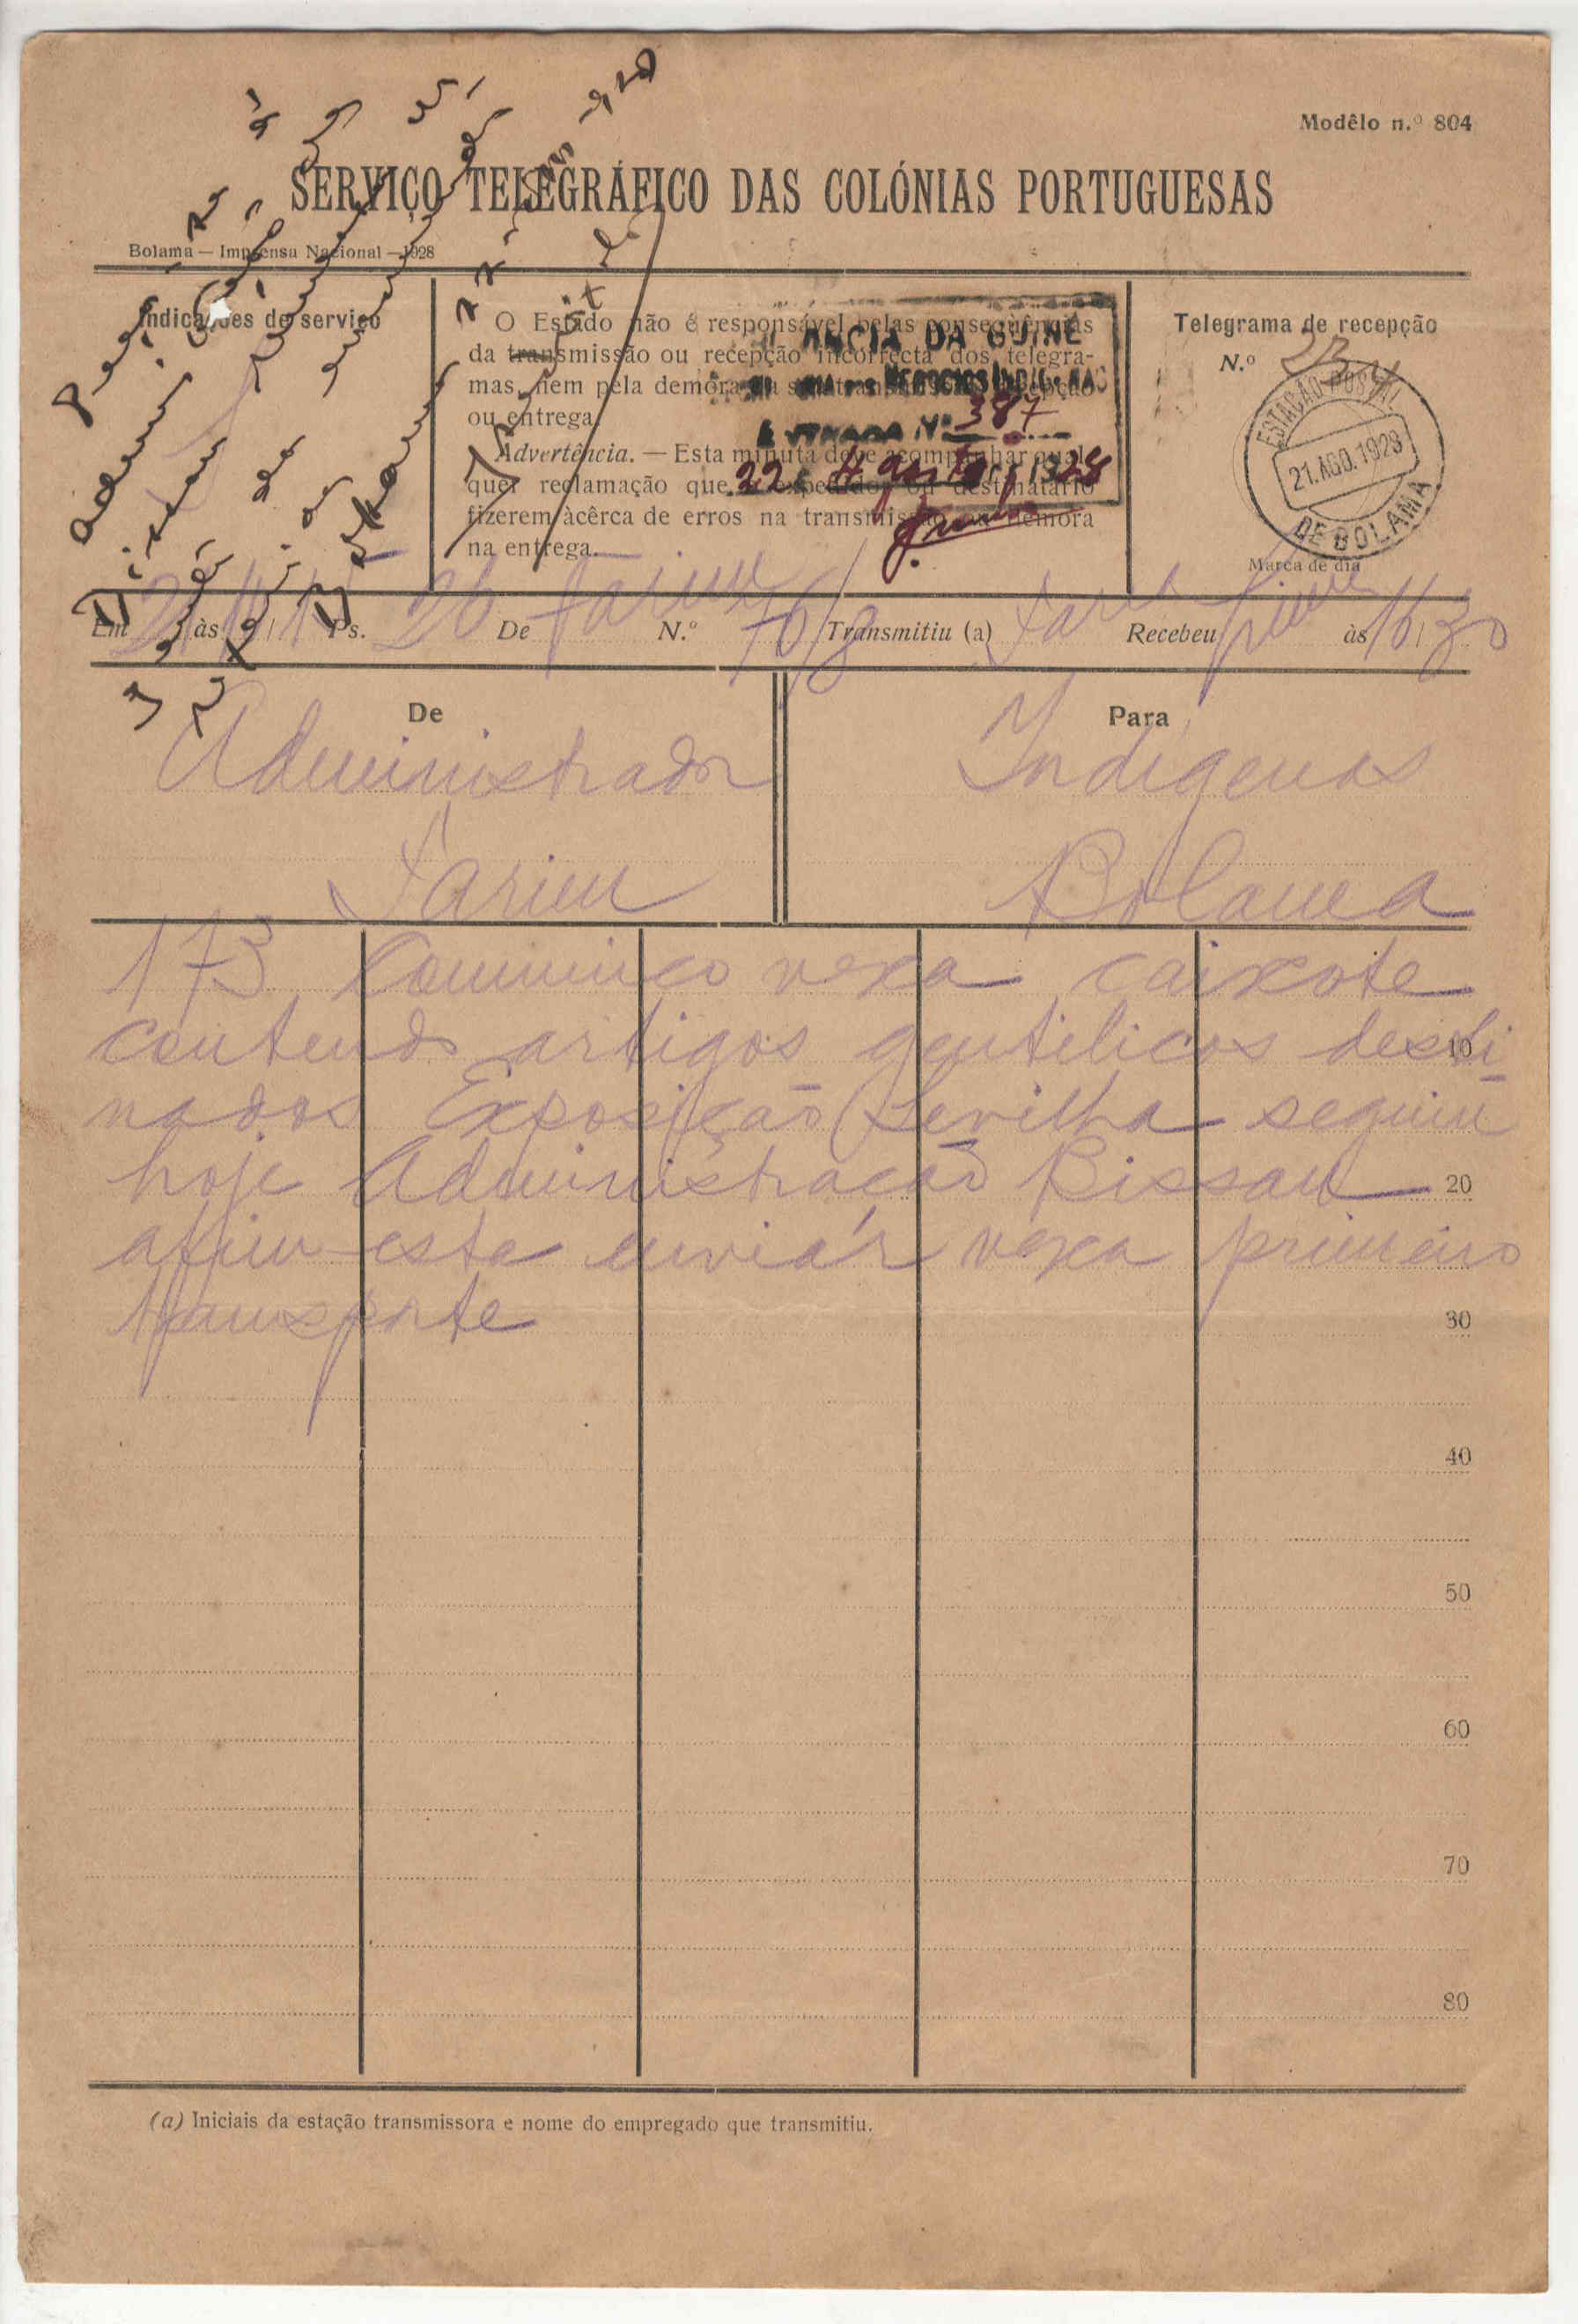 Modêlo n.º 804
SERVIÇO TELEGRÁFICO DAS COLÓNIAS PORTUGUESAS
Bolama — Imprensa Nacional — 1928
Indicações de serviço
O Estado não é responsável pelas conseqüências
da transmissão ou recepção incorrecta dos telegra-
mas, nem pela demora na sua transmissão, recepção
ou entrega.
Advertência. — Esta minuta deve acompanhar qual-
quer reclamação que o expedidor ou destinatário
fizerem àcêrca de erros na transmissão ou demora
na entrega.
DA GUINÉ
NEGOCIOS INDIGENAS
ENTRADA Nº 387
22 Agosto 1928
Telegrama de recepção
N.º
ESTAÇÃO POSTAL
21.AGO.1928
DE BOLAMA
Marca de dia
Em 21 às Ps. 26 De Farim N.º 70/8 Transmitiu (a) Recebeu às 16/30
De
Administrador
Farim
Para
Indigenas
Bolama
173 Comunico vexa caixote
contendo artigos gentilicos desti
nados Exposição Sevilha seguiu
hoje Administração Bissau
afim este enviár vexa primeiro
transporte
10
20
30
40
50
60
70
80
(a) Iniciais da estação transmissora e nome do empregado que transmitiu.